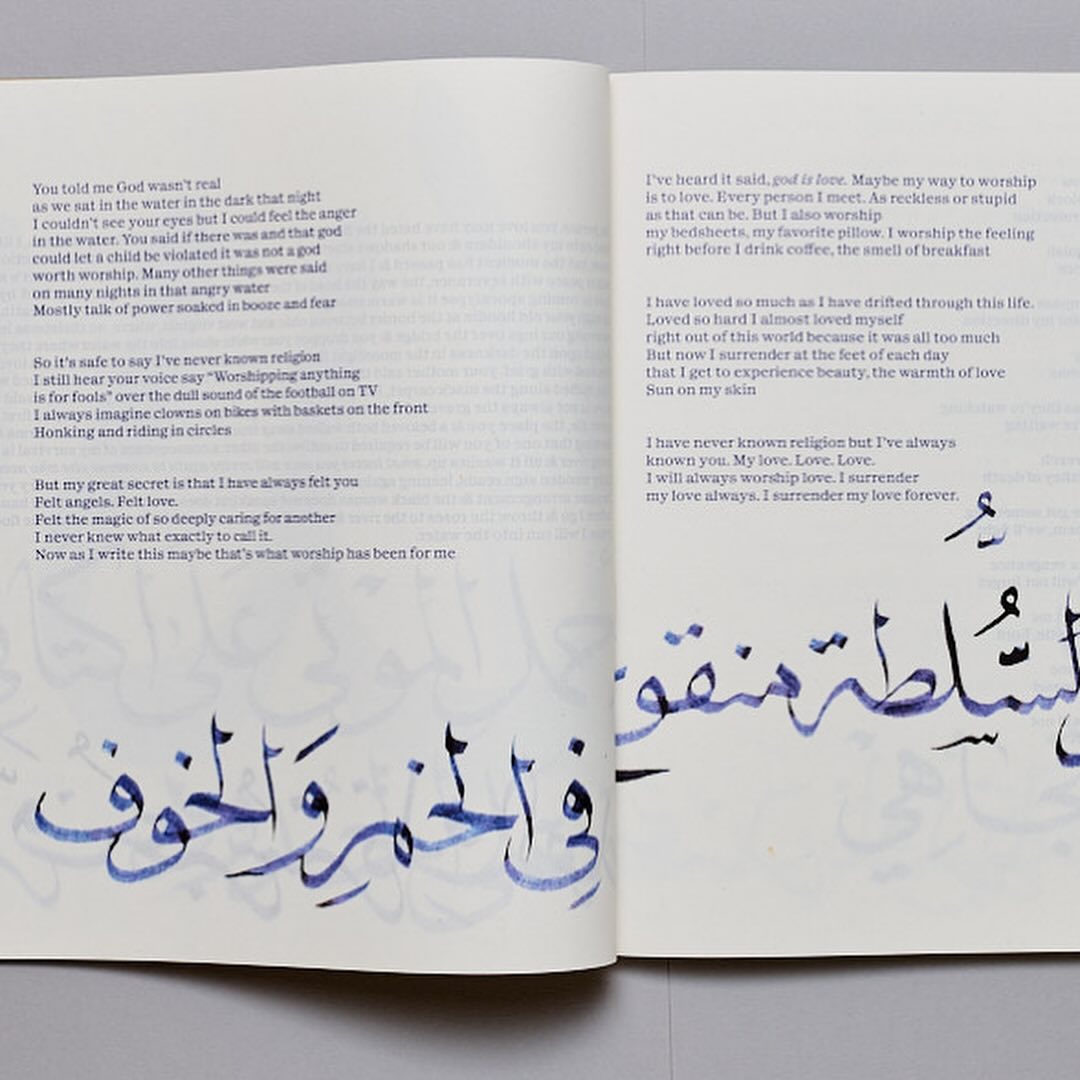 You told me God wasn't real
as we sat in the water in the dark that night
I couldn't see your eyes but I could feel the anger
in the water. You said if there was and that god
could let a child be violated it was not a god
worth worship. Many other things were said
on many nights in that angry water
Mostly talk of power soaked in booze and fear
So it's safe to say I've never known religion
I still hear your voice say “Worshipping anything
is for fools” over the dull sound of the football on TV
I always imagine clowns on bikes with baskets on the front
Honking and riding in circles
But my great secret is that I have always felt you
Felt angels. Felt love.
Felt the magic of so deeply caring for another
I never knew what exactly to call it.
Now as I write this maybe that's what worship has been for me
في الخمرِ وَالخوف
I've heard it said, god is love. Maybe my way to worship
is to love. Every person I meet. As reckless or stupid
as that can be. But I also worship
my bedsheets, my favorite pillow. I worship the feeling
right before I drink coffee, the smell of breakfast
I have loved so much as I have drifted through this life.
Loved so hard I almost loved myself
right out of this world because it was all too much
But now I surrender at the feet of each day
that I get to experience beauty, the warmth of love
Sun on my skin
I have never known religion but I've always
known you. My love. Love. Love.
I will always worship love. I surrender
my love always. I surrender my love forever.
السُّلطة منقو